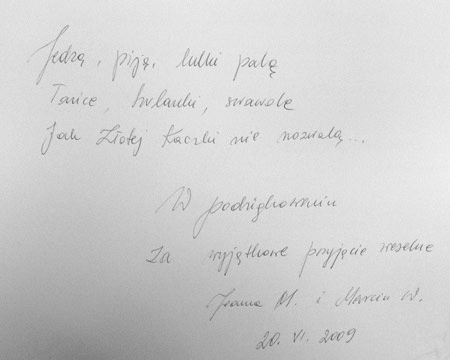 Jedzą, piją, lulki palą
Tańce, hulanki, swawole
Jak Złotej Kaczki nie rozwalą...
W podziękowaniu
Za wyjątkowe przyjęcie weselne
Joanna M. i Marcin W.
20. VI. 2009